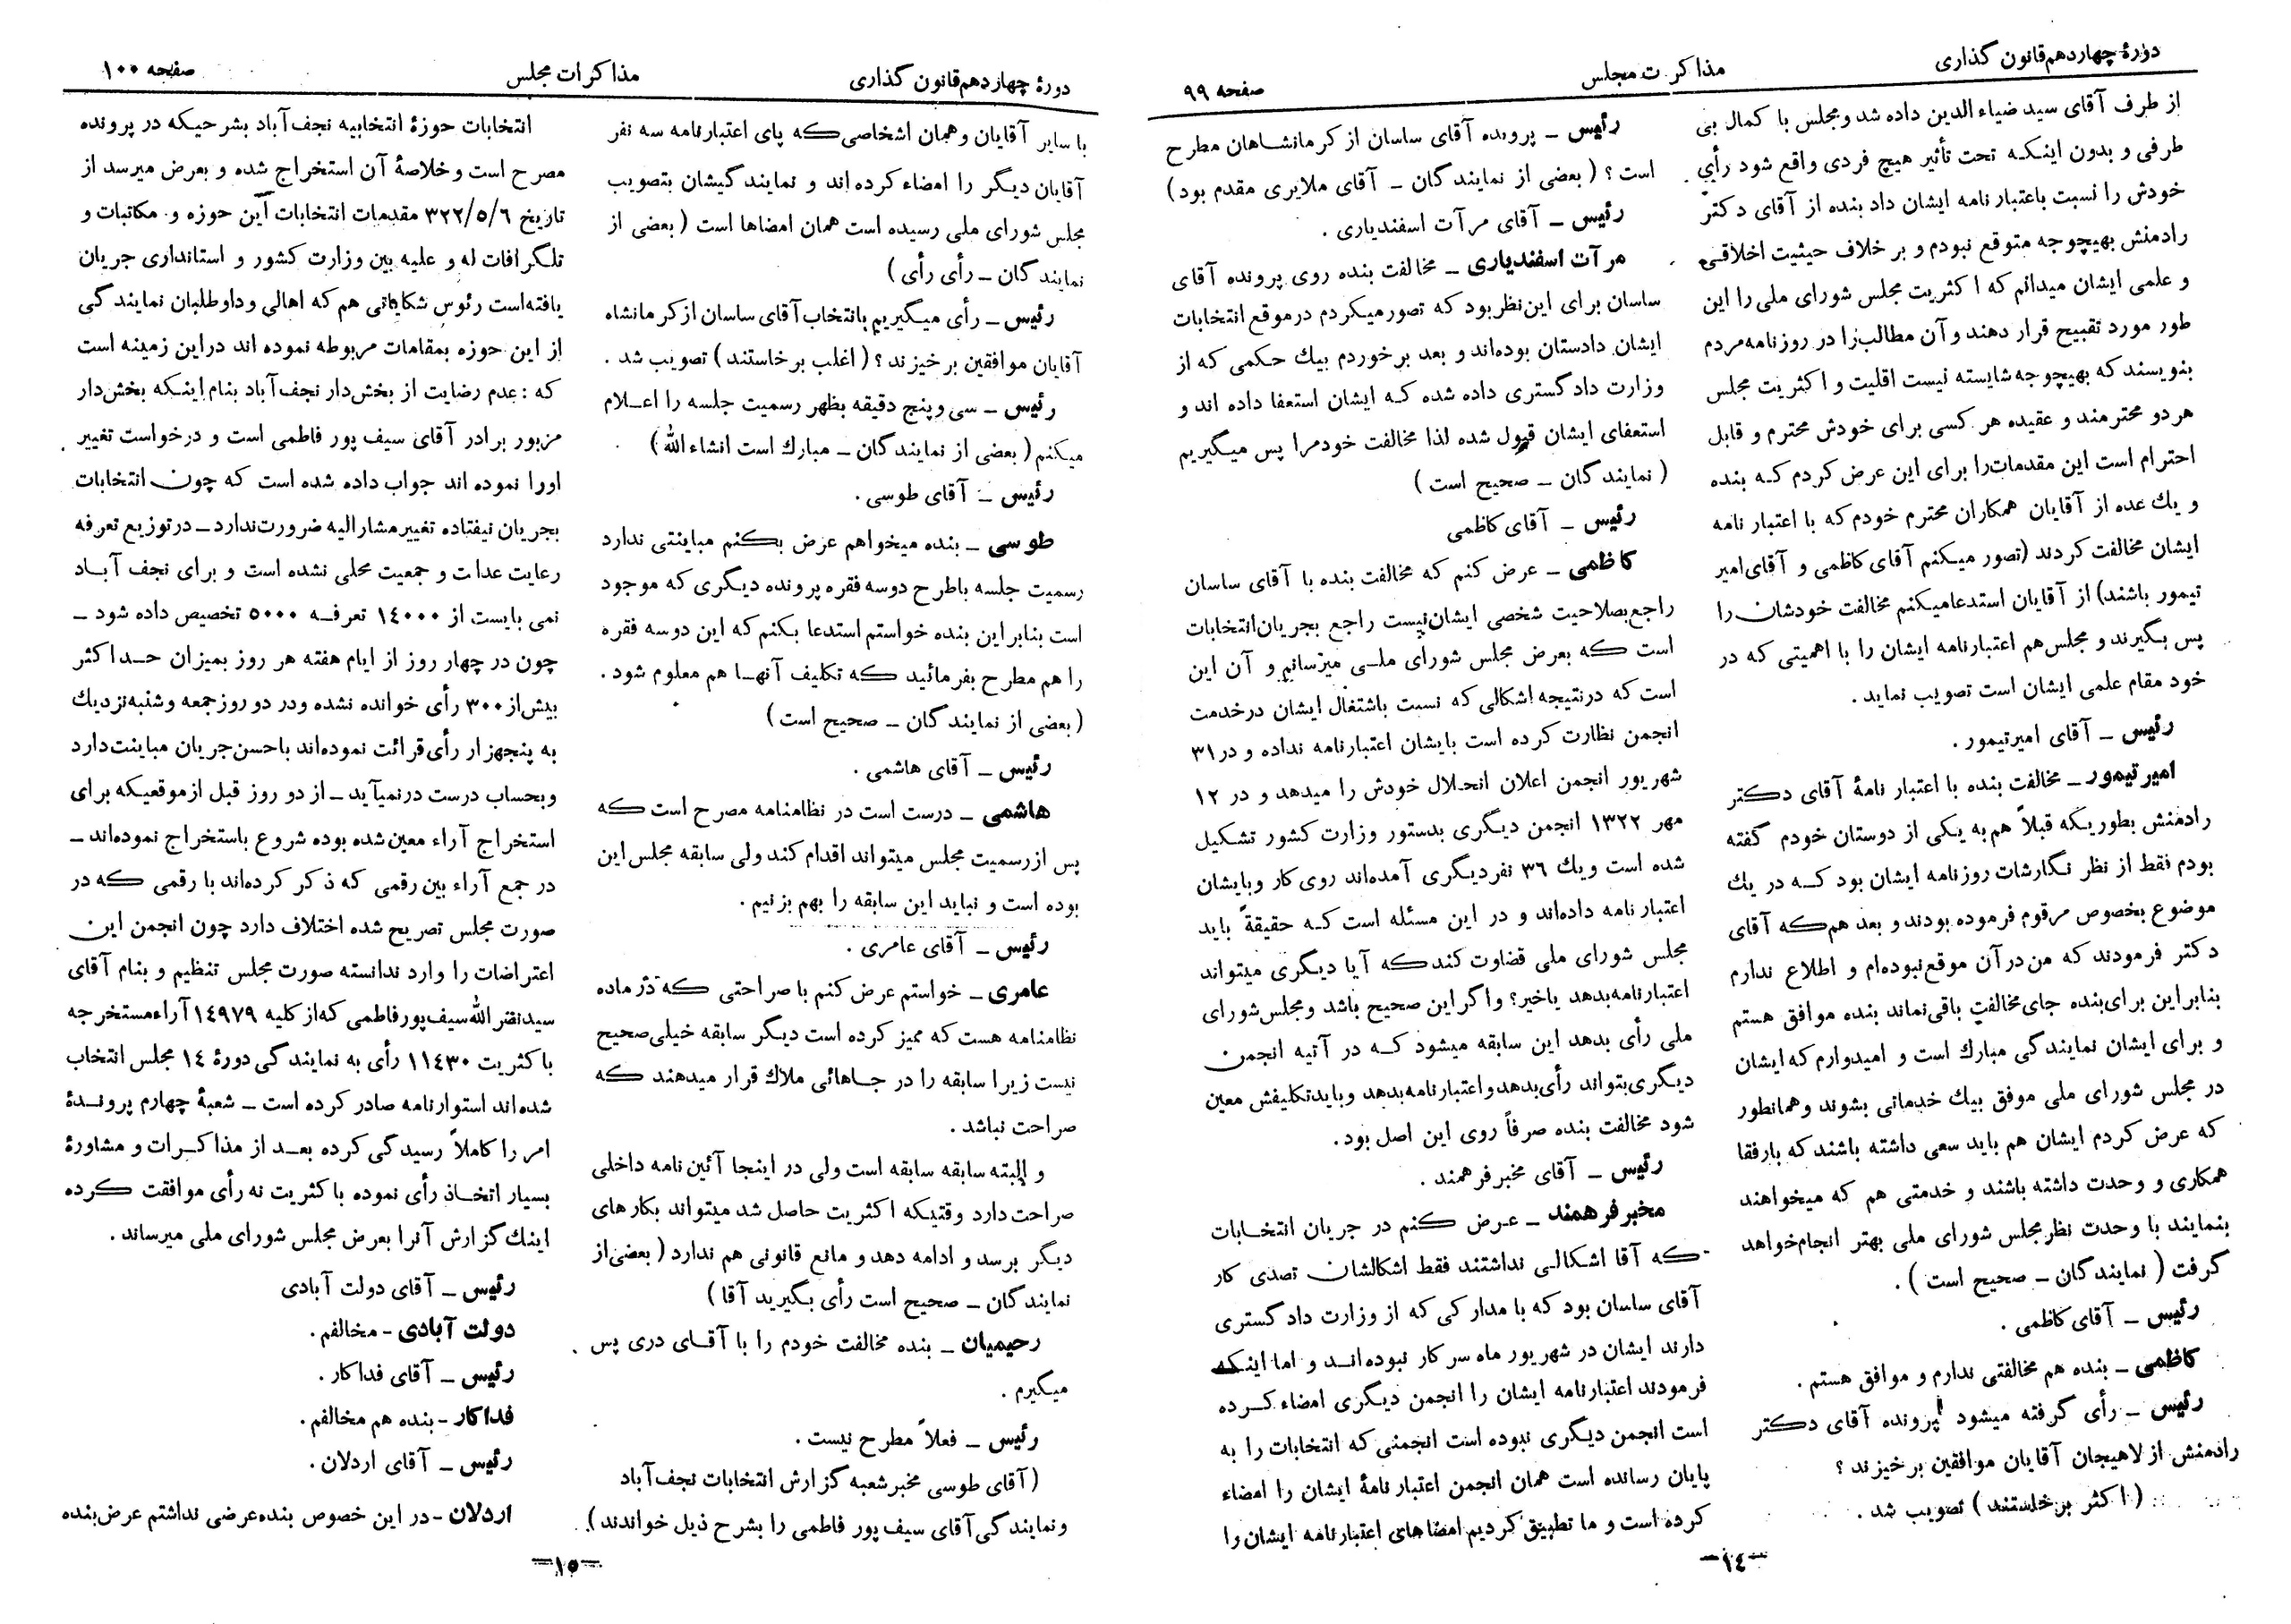 دورهٔ چهاردهم قانون گذاری
مذاکرت مجلس
صفحه ۹۹
از طرف آقای سید ضیاء الدین داده شد و مجلس با کمال بی
طرفی و بدون اینکه تحت تأثیر هیچ فردی واقع شود رأی
خودش را نسبت باعتبار نامه ایشان داد بنده از آقای دکتر
رادمنش بهیچوجه متوقع نبودم و بر خلاف حیثیت اخلاقی
و علمی ایشان میدانم که اکثریت مجلس شورای ملی را این
طور مورد تقبیح قرار دهند و آن مطالب را در روزنامه مردم
بنویسند که بهیچوجه شایسته نیست اقلیت و اکثریت مجلس
هر دو محترمند و عقیده هر کسی برای خودش محترم و قابل
احترام است این مقدمات را برای این عرض کردم که بنده
و یك عده از آقایان همکاران محترم خودم که با اعتبار نامه
ایشان مخالفت کردند (تصور میکنم آقای کاظمی و آقای امیر
تیمور باشند) از آقایان استدعا میکنم مخالفت خودشان را
پس بگیرند و مجلس هم اعتبارنامه ایشان را با اهمیتی که در
خود مقام علمی ایشان است تصویب نماید .
رئیس ـ آقای امیرتیمور .
امیر تیمور ـ مخالفت بنده با اعتبار نامهٔ آقای دکتر
رادمنش بطوریکه قبلاً هم به یکی از دوستان خودم گفته
بودم فقط از نظر نگارشات روزنامه ایشان بود که در یك
موضوع بخصوص مرقوم فرموده بودند و بعد هم که آقای
دکتر فرمودند که من در آن موقع نبوده‌ام و اطلاع ندارم
بنابراین برای بنده جای مخالفت باقی نماند بنده موافق هستم
و برای ایشان نمایندگی مبارك است و امیدوارم که ایشان
در مجلس شورای ملی موفق بیك خدماتی بشوند و همانطور
که عرض کردم ایشان هم باید سعی داشته باشند که بارفقا
همکاری و وحدت داشته باشند و خدمتی هم که میخواهند
بنمایند با وحدت نظر مجلس شورای ملی بهتر انجام خواهد
گرفت ( نمایندگان ـ صحیح است ) .
رئیس ـ آقای کاظمی .
کاظمی ـ بنده هم مخالفتی ندارم و موافق هستم .
رئیس ـ رأی گرفته میشود پرونده آقای دکتر
رادمنش از لاهیجان آقایان موافقین برخیزند ؟
( اکثر برخاستند ) تصویب شد .
رئیس ـ پرونده آقای ساسان از کرمانشاهان مطرح
است ؟ ( بعضی از نمایندگان ـ آقای ملایری مقدم بود )
رئیس ـ آقای مرآت اسفندیاری .
مرآت اسفندیاری ـ مخالفت بنده روی پرونده آقای
ساسان برای این نظر بود که تصور میکردم در موقع انتخابات
ایشان دادستان بوده‌اند و بعد برخوردم بیك حکمی که از
وزارت دادگستری داده شده که ایشان استعفا داده اند و
استعفای ایشان قبول شده لذا مخالفت خودمرا پس میگیریم
( نمایندگان ـ صحیح است )
رئیس ـ آقای کاظمی
کاظمی ـ عرض کنم که مخالفت بنده با آقای ساسان
راجع بصلاحیت شخصی ایشان نیست راجع بجریان انتخابات
است که بعرض مجلس شورای ملی میرسانم و آن این
است که درنتیجه اشکالی که نسبت باشتغال ایشان درخدمت
انجمن نظارت کرده است بایشان اعتبارنامه نداده و در ۳۱
شهریور انجمن اعلان انحلال خودش را میدهد و در ۱۲
مهر ۱۳۲۲ انجمن دیگری بدستور وزارت کشور تشکیل
شده است و یك ۳۶ نفر دیگری آمده‌اند روی کار و بایشان
اعتبار نامه داده‌اند و در این مسئله است که حقیقةً باید
مجلس شورای ملی قضاوت کند که آیا دیگری میتواند
اعتبارنامه بدهد یا خیر؟ و اگر این صحیح باشد و مجلس شورای
ملی رأی بدهد این سابقه میشود که در آتیه انجمن
دیگری بتواند رأی بدهد و اعتبارنامه بدهد و باید تکلیفش معین
شود مخالفت بنده صرفاً روی این اصل بود.
رئیس ـ آقای مخبر فرهمند .
مخبر فرهمند ـ عرض کنم در جریان انتخابات
که آقا اشکالی نداشتند فقط اشکالشان تصدی کار
آقای ساسان بود که با مدارکی که از وزارت دادگستری
دارند ایشان در شهریور ماه سر کار نبوده‌اند و اما اینکه
فرمودند اعتبارنامه ایشان را انجمن دیگری امضاء کرده
است انجمن دیگری نبوده است انجمنی که انتخابات را به
پایان رسانده است همان انجمن اعتبار نامهٔ ایشان را امضاء
کرده است و ما تطبیق کردیم امضاهای اعتبارنامه ایشان را
ـ۱٤ـ
دورهٔ چهاردهم قانون گذاری
مذاکرات مجلس
صفحه ۱۰۰
با سایر آقایان و همان اشخاصی که پای اعتبارنامه سه نفر
آقایان دیگر را امضاء کرده اند و نمایندگیشان بتصویب
مجلس شورای ملی رسیده است همان امضاها است ( بعضی از
نمایندگان ـ رأی رأی )
رئیس ـ رأی میگیریم بانتخاب آقای ساسان از کرمانشاه
آقایان موافقین برخیزند ؟ ( اغلب برخاستند ) تصویب شد .
رئیس ـ سی و پنج دقیقه بظهر رسمیت جلسه را اعلام
میکنم ( بعضی از نمایندگان ـ مبارك است انشاءالله )
رئیس ـ آقای طوسی .
طوسی ـ بنده میخواهم عرض بکنم مباینتی ندارد
رسمیت جلسه باطرح دوسه فقره پرونده دیگری که موجود
است بنابراین بنده خواستم استدعا بکنم که این دوسه فقره
را هم مطرح بفرمائید که تکلیف آنها هم معلوم شود .
( بعضی از نمایندگان ـ صحیح است )
رئیس ـ آقای هاشمی .
هاشمی ـ درست است در نظامنامه مصرح است که
پس از رسمیت مجلس میتواند اقدام کند ولی سابقه مجلس این
بوده است و نباید این سابقه را بهم بزنیم .
رئیس ـ آقای عامری .
عامری ـ خواستم عرض کنم با صراحتی که در ماده
نظامنامه هست که ممیز کرده است دیگر سابقه خیلی صحیح
نیست زیرا سابقه را در جاهائی ملاك قرار میدهند که
صراحت نباشد .
و البته سابقه سابقه است ولی در اینجا آئین نامه داخلی
صراحت دارد وقتیکه اکثریت حاصل شد میتواند بکارهای
دیگر برسد و ادامه دهد و مانع قانونی هم ندارد ( بعضی از
نمایندگان ـ صحیح است رأی بگیرید آقا )
رحیمیان ـ بنده مخالفت خودم را با آقای دری پس
میگیرم .
رئیس ـ فعلاً مطرح نیست .
(آقای طوسی مخبر شعبه گزارش انتخابات نجف‌آباد
و نمایندگی آقای سیف پور فاطمی را بشرح ذیل خواندند ).
انتخابات حوزهٔ انتخابیه نجف‌آباد بشرحیکه در پرونده
مصرح است و خلاصهٔ آن استخراج شده و بعرض میرسد از
تاریخ ۳۲۲/۵/۶ مقدمات انتخابات این حوزه و مکاتبات و
تلگرافات له و علیه بین وزارت کشور و استانداری جریان
یافته‌است رئوس شکایاتی هم که اهالی و داوطلبان نمایندگی
از این حوزه بمقامات مربوطه نموده اند دراین زمینه است
که : عدم رضایت از بخش‌دار نجف‌آباد بنام اینکه بخش‌دار
مزبور برادر آقای سیف پور فاطمی است و درخواست تغییر
اورا نموده اند جواب داده شده است که چون انتخابات
بجریان نیفتاده تغییر مشارالیه ضرورت ندارد ـ در توزیع تعرفه
رعایت عدات و جمعیت محلی نشده است و برای نجف آباد
نمی بایست از ۱٤۰۰۰ تعرفه ۵۰۰۰ تخصیص داده شود ـ
چون در چهار روز از ایام هفته هر روز بمیزان حداکثر
بیش از ۳۰۰ رأی خوانده نشده ودر دو روز جمعه و شنبه نزدیك
به پنجهزار رأی قرائت نموده‌اند باحسن جریان مباینت دارد
و بحساب درست درنمیآید ـ از دو روز قبل از موقعیکه برای
استخراج آراء معین شده بوده شروع باستخراج نموده‌اند ـ
در جمع آراء بین رقمی که ذکر کرده‌اند با رقمی که در
صورت مجلس تصریح شده اختلاف دارد چون انجمن این
اعتراضات را وارد ندانسته صورت مجلس تنظیم و بنام آقای
سیدنصرالله سیف‌پور فاطمی که از کلیه ۱٤۹۷۹ آراء مستخرجه
با کثریت ۱۱٤۳۰ رأی به نمایندگی دورهٔ ۱٤ مجلس انتخاب
شده‌اند استوارنامه صادر کرده است ـ شعبهٔ چهارم پروندهٔ
امر را کاملاً رسیدگی کرده بعد از مذاکرات و مشاورهٔ
بسیار اتخاذ رأی نموده با کثریت نه رأی موافقت کرده
اینك گزارش آنرا بعرض مجلس شورای ملی میرساند .
رئیس ـ آقای دولت آبادی
دولت آبادی - مخالفم .
رئیس ـ آقای فداکار .
فداکار - بنده هم مخالفم .
رئیس ـ آقای اردلان .
اردلان - در این خصوص بنده عرضی نداشتم عرض بنده
ـ۱۵ـ